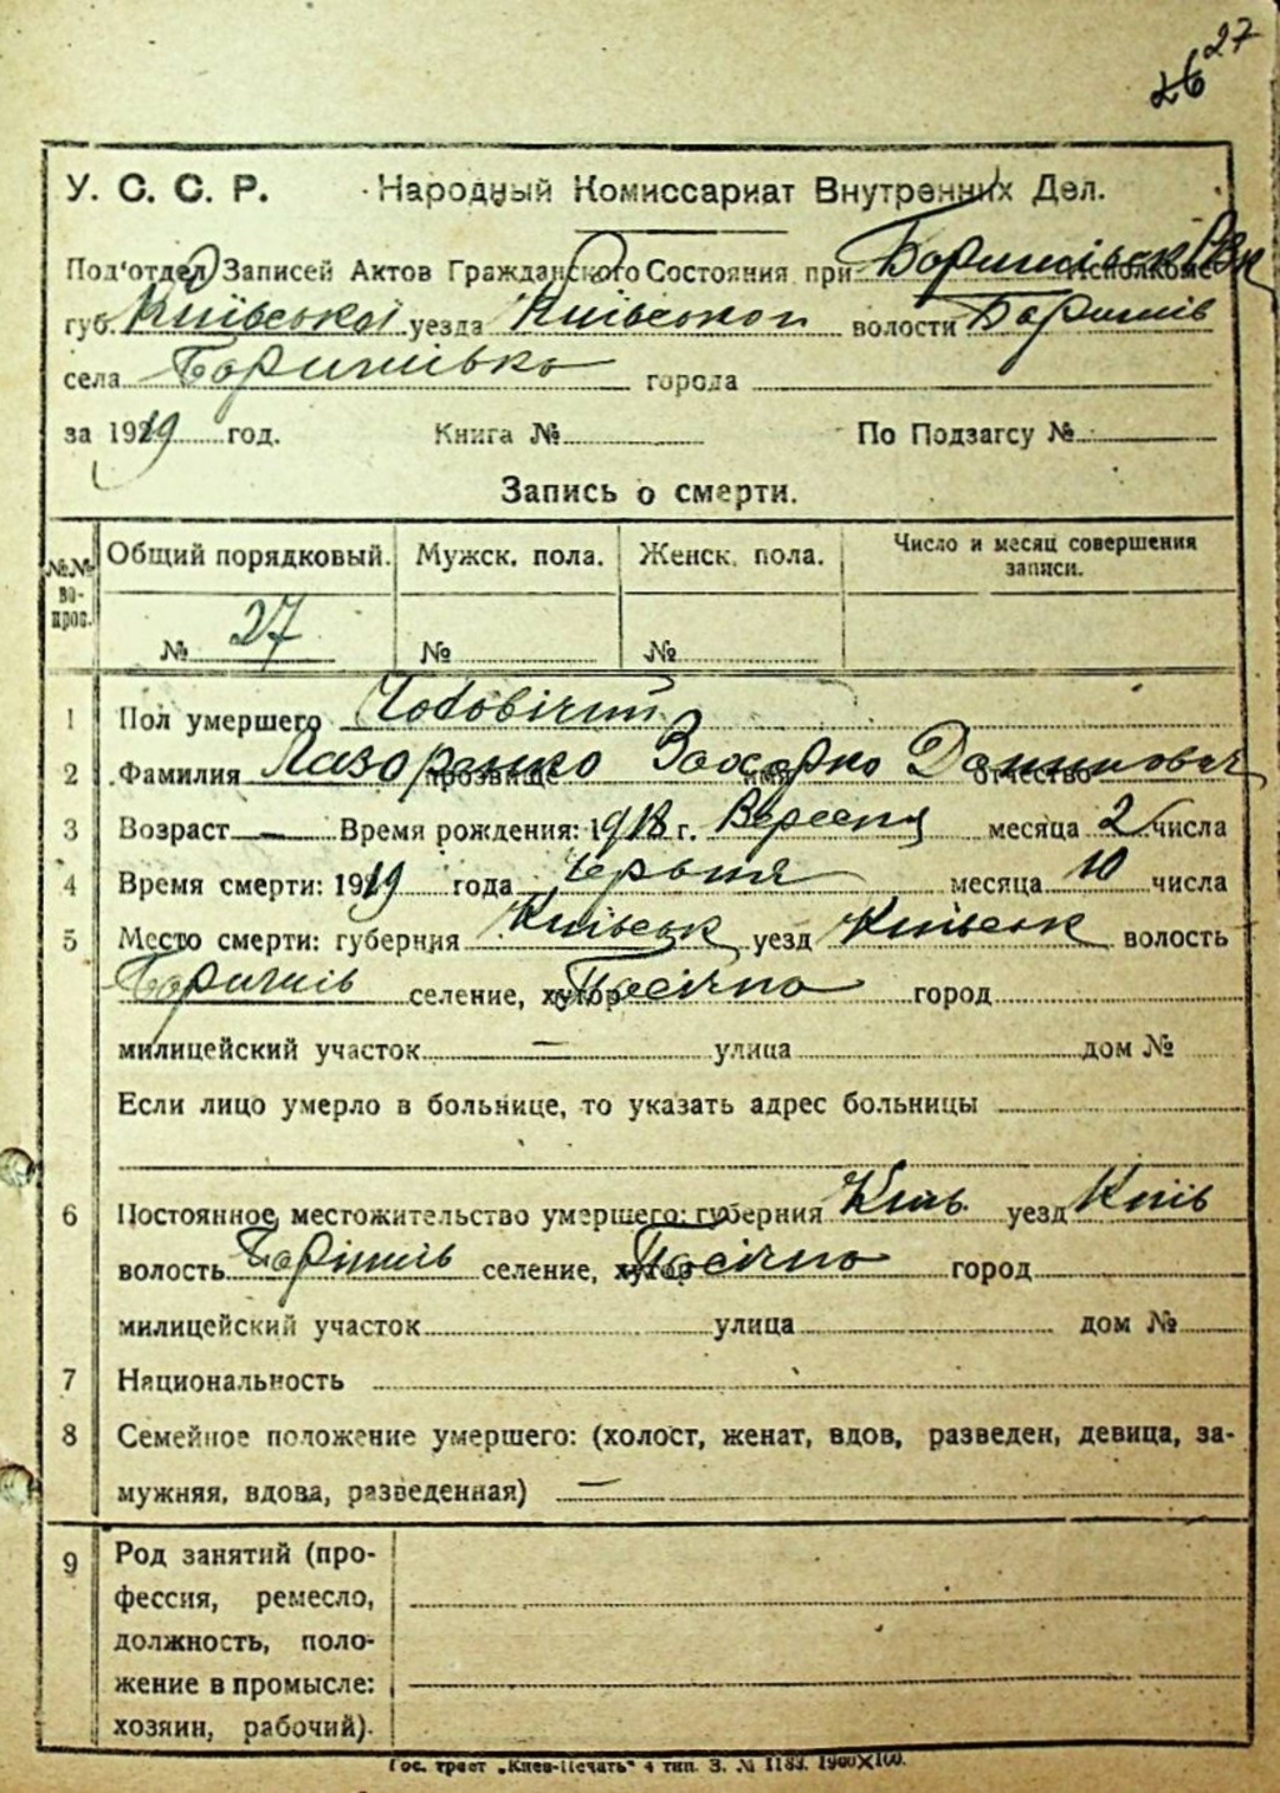 27
26
У. С. С. Р. Народный Комиссариат Внутренних Дел.
Под'отдел Записей Актов Гражданского Состояния при исполкоме
губ. Київської уезда Київської волости
села города
за 1919 год. Книга № По Подзагсу №
Запись о смерти.
№№ вопрос. Общий порядковый. Мужск. пола. Женск. пола. Число и месяц совершения записи.
№ 27 № №
1 Пол умершего Чоловічий
2 Фамилия Лазоренко прозвище Захарко имя Данилович отчество
3 Возраст — Время рождения: 1918 г. Вересня месяца 2 числа
4 Время смерти: 1919 года Червня месяца 10 числа
5 Место смерти: губерния Київськ уезд Київськ волость
селение, хутор Пасічна город
милицейский участок — улица дом №
Если лицо умерло в больнице, то указать адрес больницы
6 Постоянное местожительство умершего: губерния Київ уезд Київ
волость селение, хутор Пасічна город
милицейский участок улица дом №
7 Национальность
8 Семейное положение умершего: (холост, женат, вдов, разведен, девица, за-
мужняя, вдова, разведенная) —
9 Род занятий (про-
фессия, ремесло,
должность, поло-
жение в промысле:
хозяин, рабочий).
Гос. трест „Киев-Печать" 4 тип. З. № 1183. 1900×100.